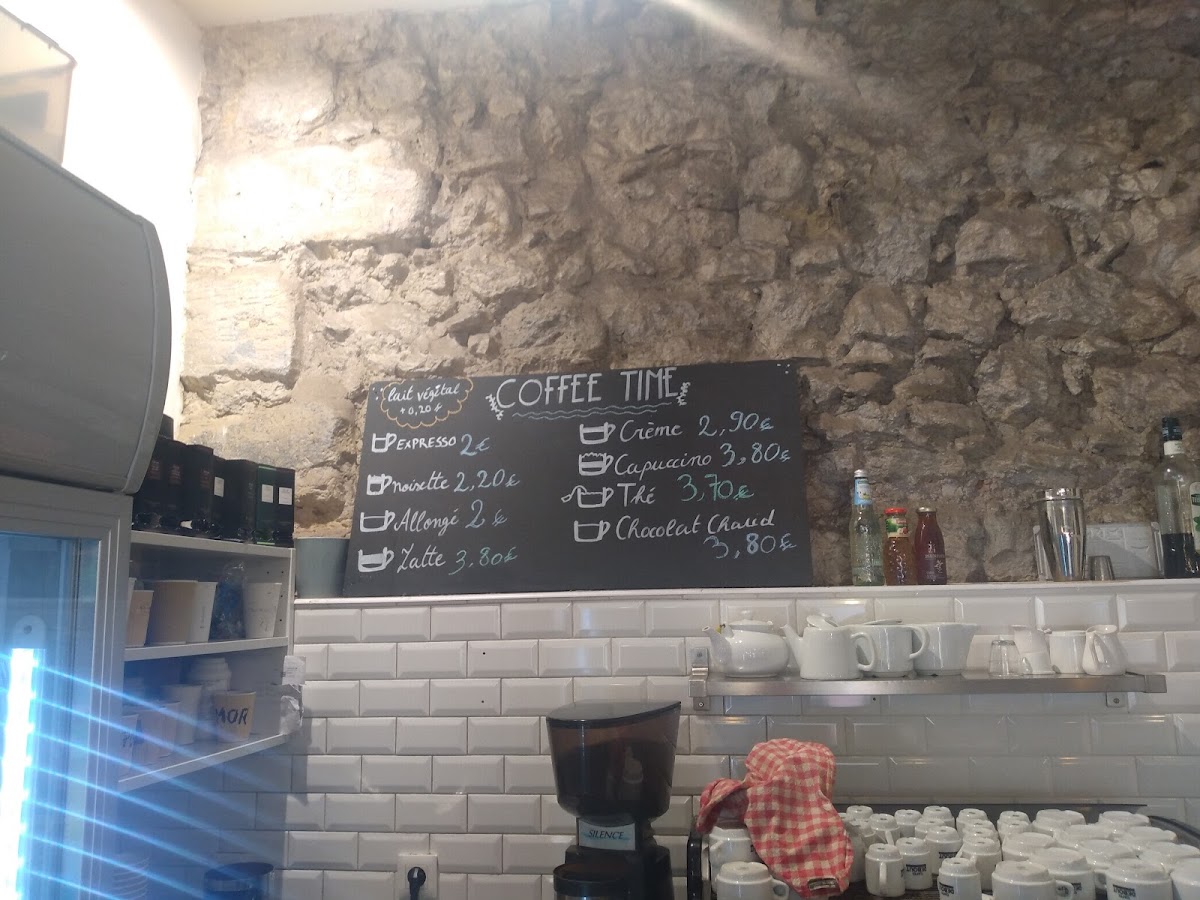 lait végétal
+0,20€
COFFEE TIME
EXPRESSO 2€
noisette 2,20€
Allongé 2€
Latte 3,80€
Crème 2,90€
Capuccino 3,80€
Thé 3,70€
Chocolat Chaud
3,80€
MOR
SILENCE